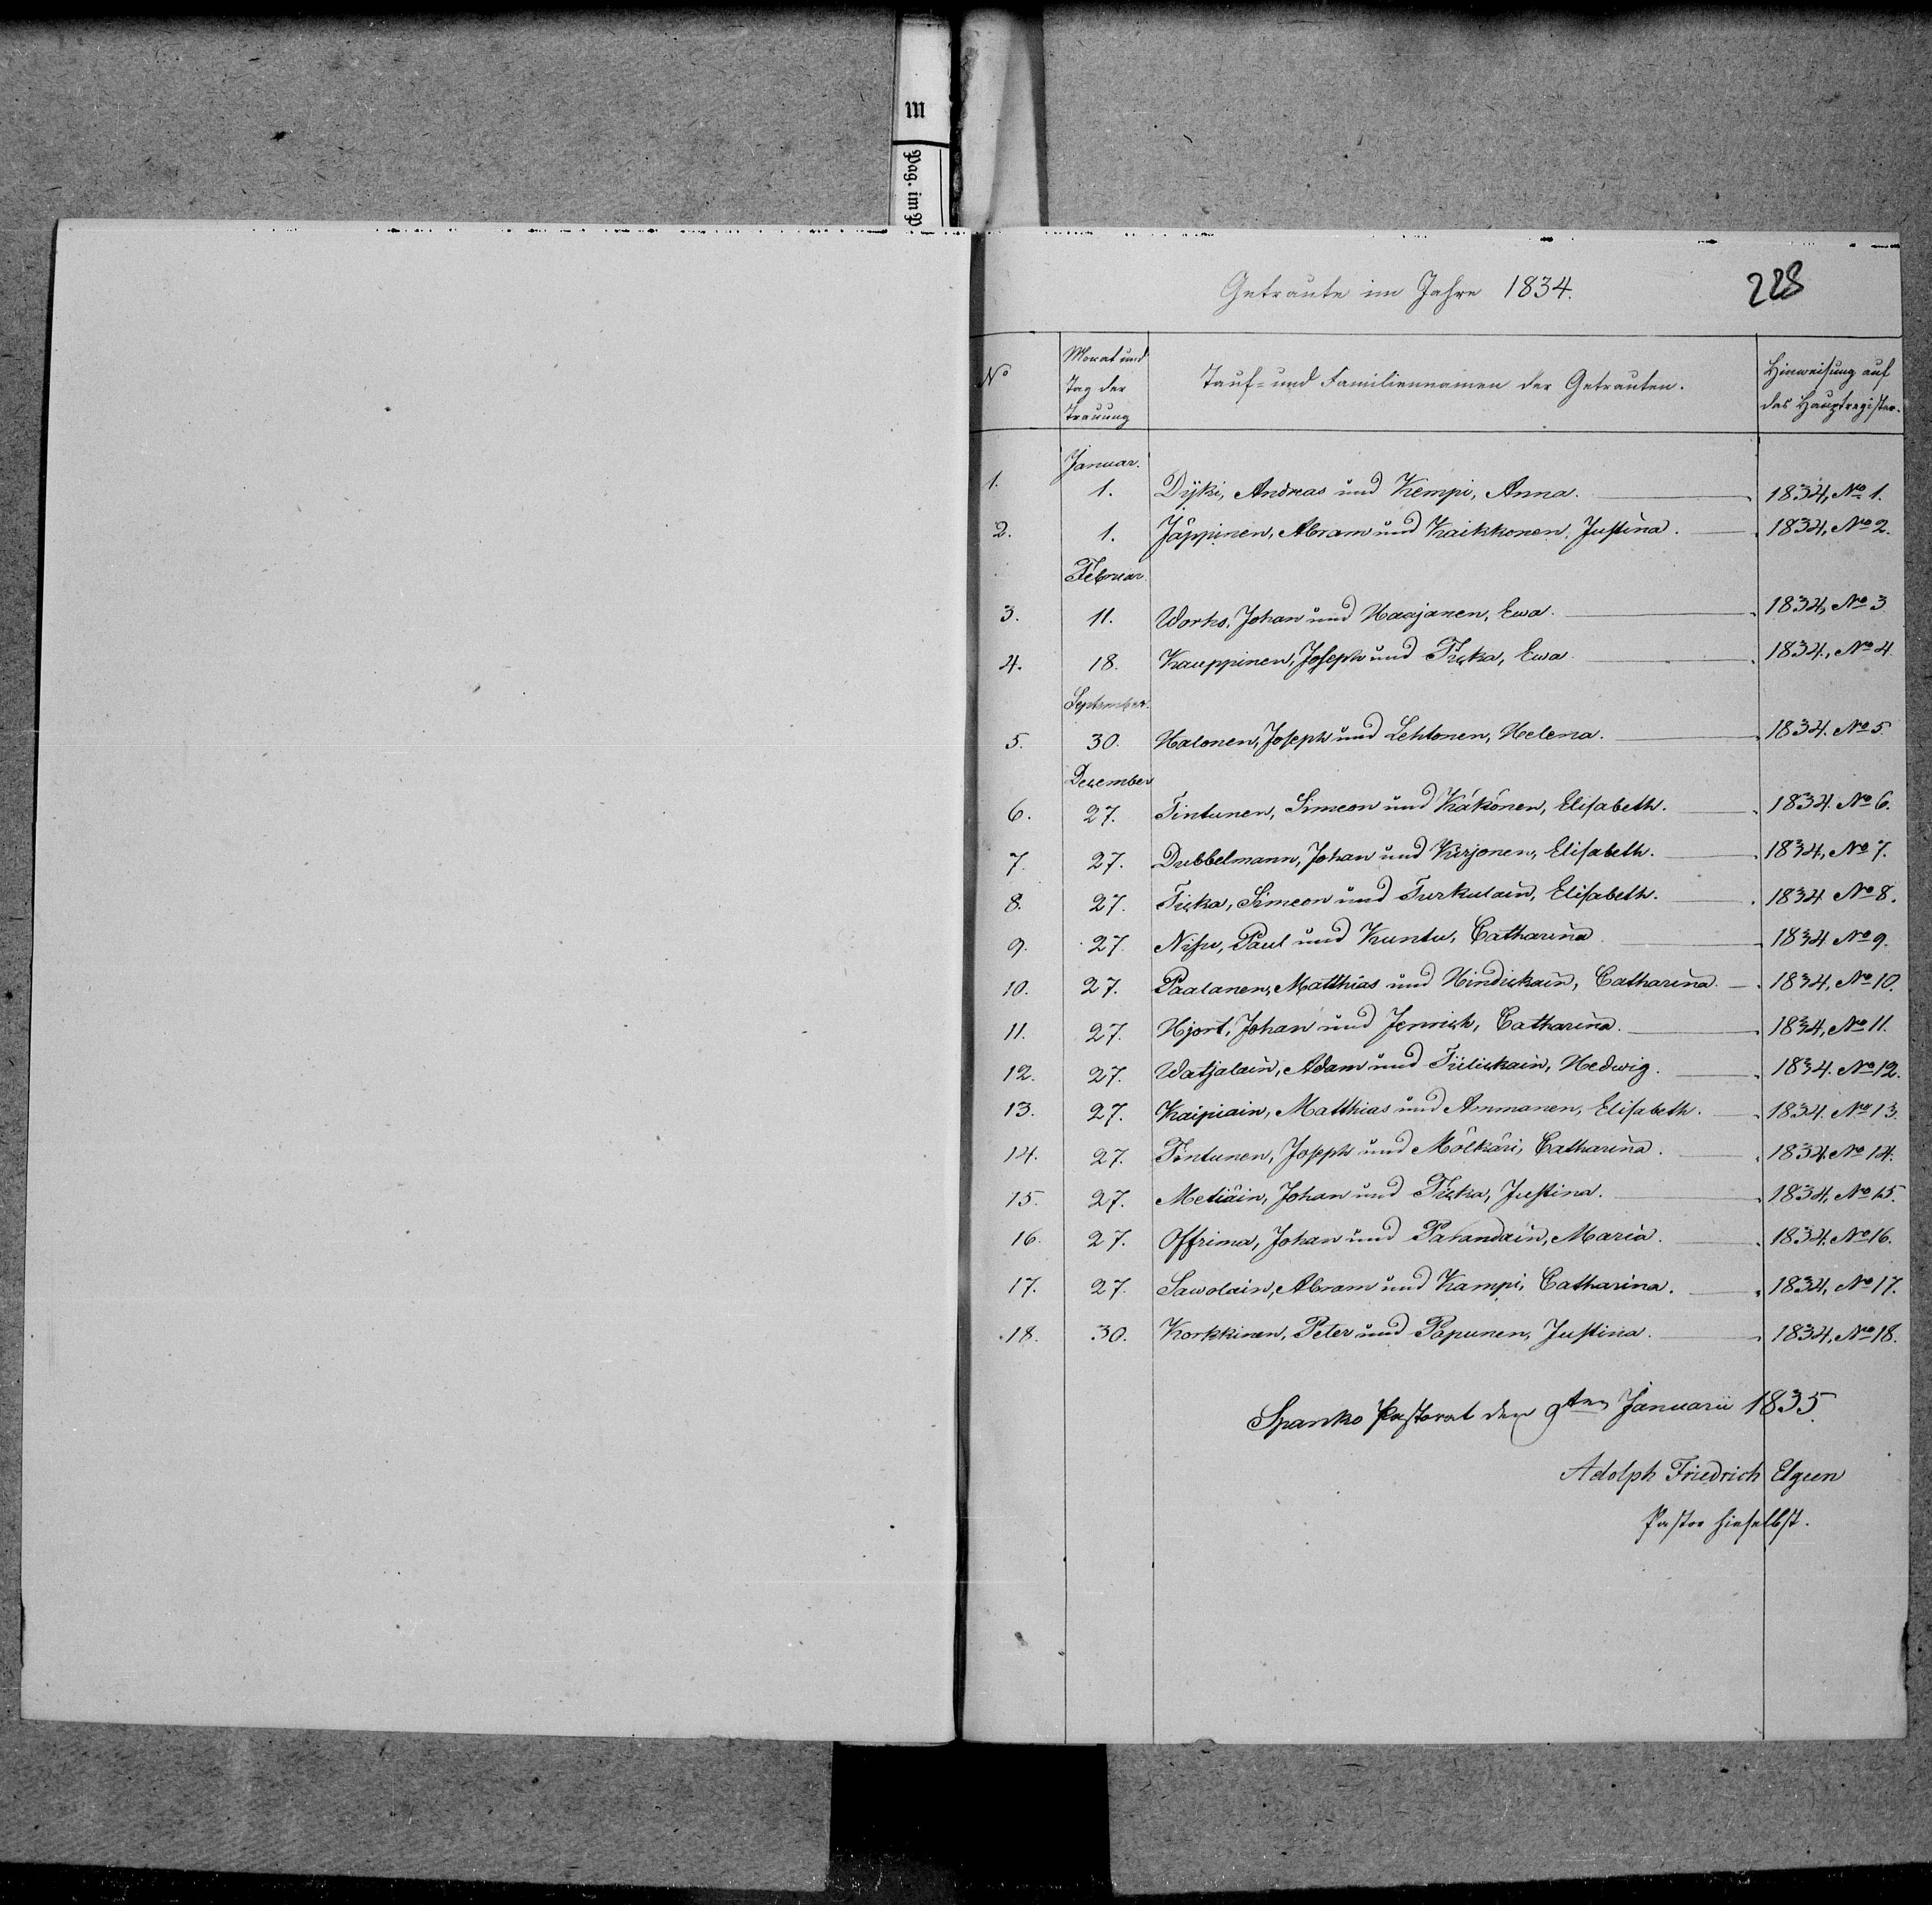 m
Pag. im P
Getraute im Jahre 1834.
228
No
Monat und
Tag der
Trauung
Tauf- und Familiennamen der Getrauten.
Hinweisung auf
das Hauptregister.
Januar.
1. 1. Dÿki, Andreas und Kempi, Anna. 1834, No 1.
2. 1. Jäppinen, Abram und Kaikkonen, Justina. 1834, No 2.
Februar.
3. 11. Worko, Johan und Haajanen, Ewa. 1834, No 3
4. 18. Kauppinen, Joseph und Ewa 1834, No 4
September.
5. 30. Halonen, Joseph und Lehtonen, Helena. 1834. No 5
December
6. 27. Tintunen, Simeon und Käkönen, Elisabeth. 1834. No 6.
7. 27. Dubbelmann, Johan und Kirjonen, Elisabeth. 1834, No 7.
8. 27. Simeon und Turkulain, Elisabeth. 1834 No 8.
9. 27. Paul und Kuntu, Catharina 1834 No 9.
10. 27. Paalanen, Matthias und Catharina. 1834, No 10.
11. 27. Hjort, Johan und Catharina. 1834, No 11.
12. 27. Watjalain, Adam und Hedwig. 1834. No 12.
13. 27. Kaipiain, Matthias und Ammanen, Elisabeth. 1834. No 13.
14. 27. Tintunen, Joseph und Mölkäri, Catharina. 1834. No 14.
15. 27. Metiäin, Johan und Justina. 1834, No 15.
16. 27. Offrima, Johan und Maria. 1834. No 16.
17. 27. Sawolain, Abram und Kampi, Catharina. 1834, No 17.
18. 30. Korkkinen, Peter und Papunen, Justina. 1834, No 18.
Spanko Pastorat den 9ten Januarii 1835.
Adolph Friedrich Elgren
Pastor hieselbst.